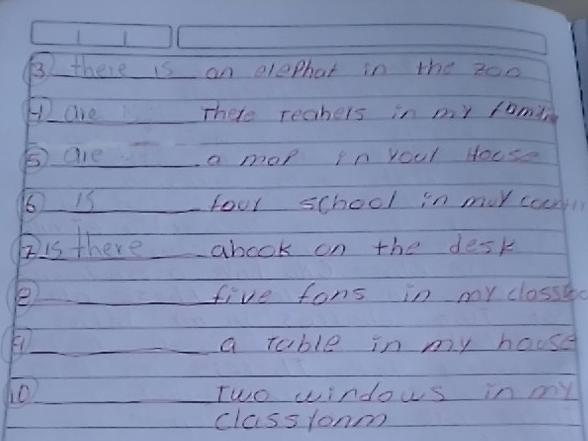 3 there is an elephat in the zoo
4 are There teachers in my family
5 are a map in your House
6 is four school in my country
7 is there abook on the desk
8 five fans in my classroo
9 a table in my house
10 Two windows in my
classroom